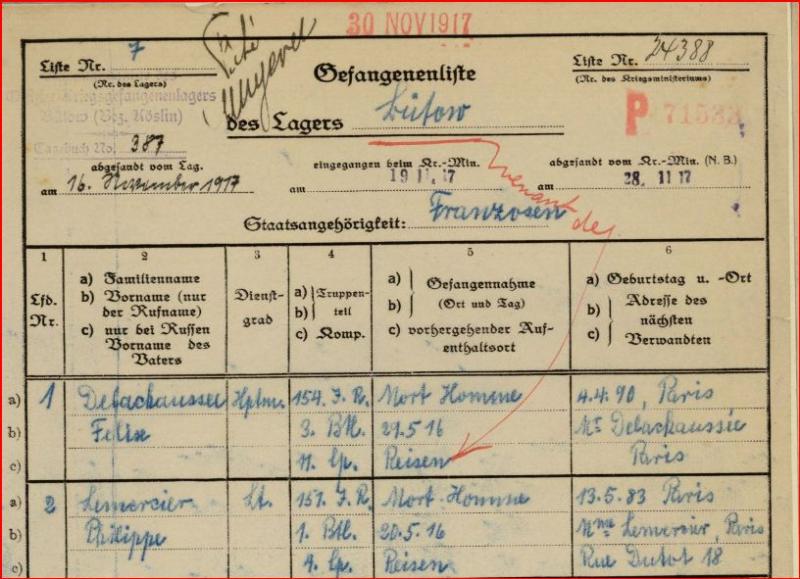 30 NOV 1917
Liste Nr. 7
(Nr. des Lagers)
Liste Nr. 24388
(Nr. des Kriegsministeriums)
Fiché
Gefangenenliste
des Lagers Bütow
P 71533
Kriegsgefangenenlagers
Bütow (Bez. Köslin)
Tagebuch No. 387
abgesandt vom Lag.
am 16. November 1917
eingegangen beim Kr.-Min.
am 19 11. 17
abgesandt vom Kr.-Min. (N. B.)
am 28. 11 17
venant de
Staatsangehörigkeit: Franzosen
1 2 3 4 5 6
Lfd. Nr.
a) Familienname
b) Vorname (nur der Rufname)
c) nur bei Russen Vorname des Vaters
Dienst-
grad
a) Truppen-
b) teil
c) Komp.
a) Gefangennahme
b) (Ort und Tag)
c) vorhergehender Auf-
enthaltsort
a) Geburtstag u. -Ort
b) Adresse des
nächsten
c) Verwandten
a) 1 Delachaussee Hptm. 154. I. R. Mort Homme 4.4.90, Paris
b) Felix 3. Btl. 29.5.16 Mr Delachaussée
c) 11. Cp. Reisen Paris
a) 2 Lemercier Lt. 151. I. R. Mort-Homme 13.5.83 Paris
b) Philippe 1. Btl. 20.5.16 Mme Lemercier, Paris
c) 4. Cp. Reisen Rue Dutot 18